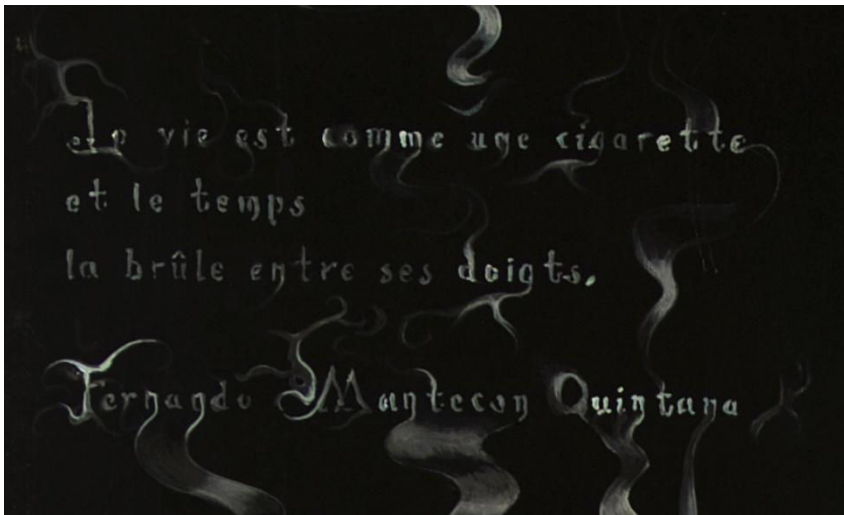 La vie est comme une cigarette
et le temps
la brûle entre ses doigts.
Fernando Mantecon Quintana